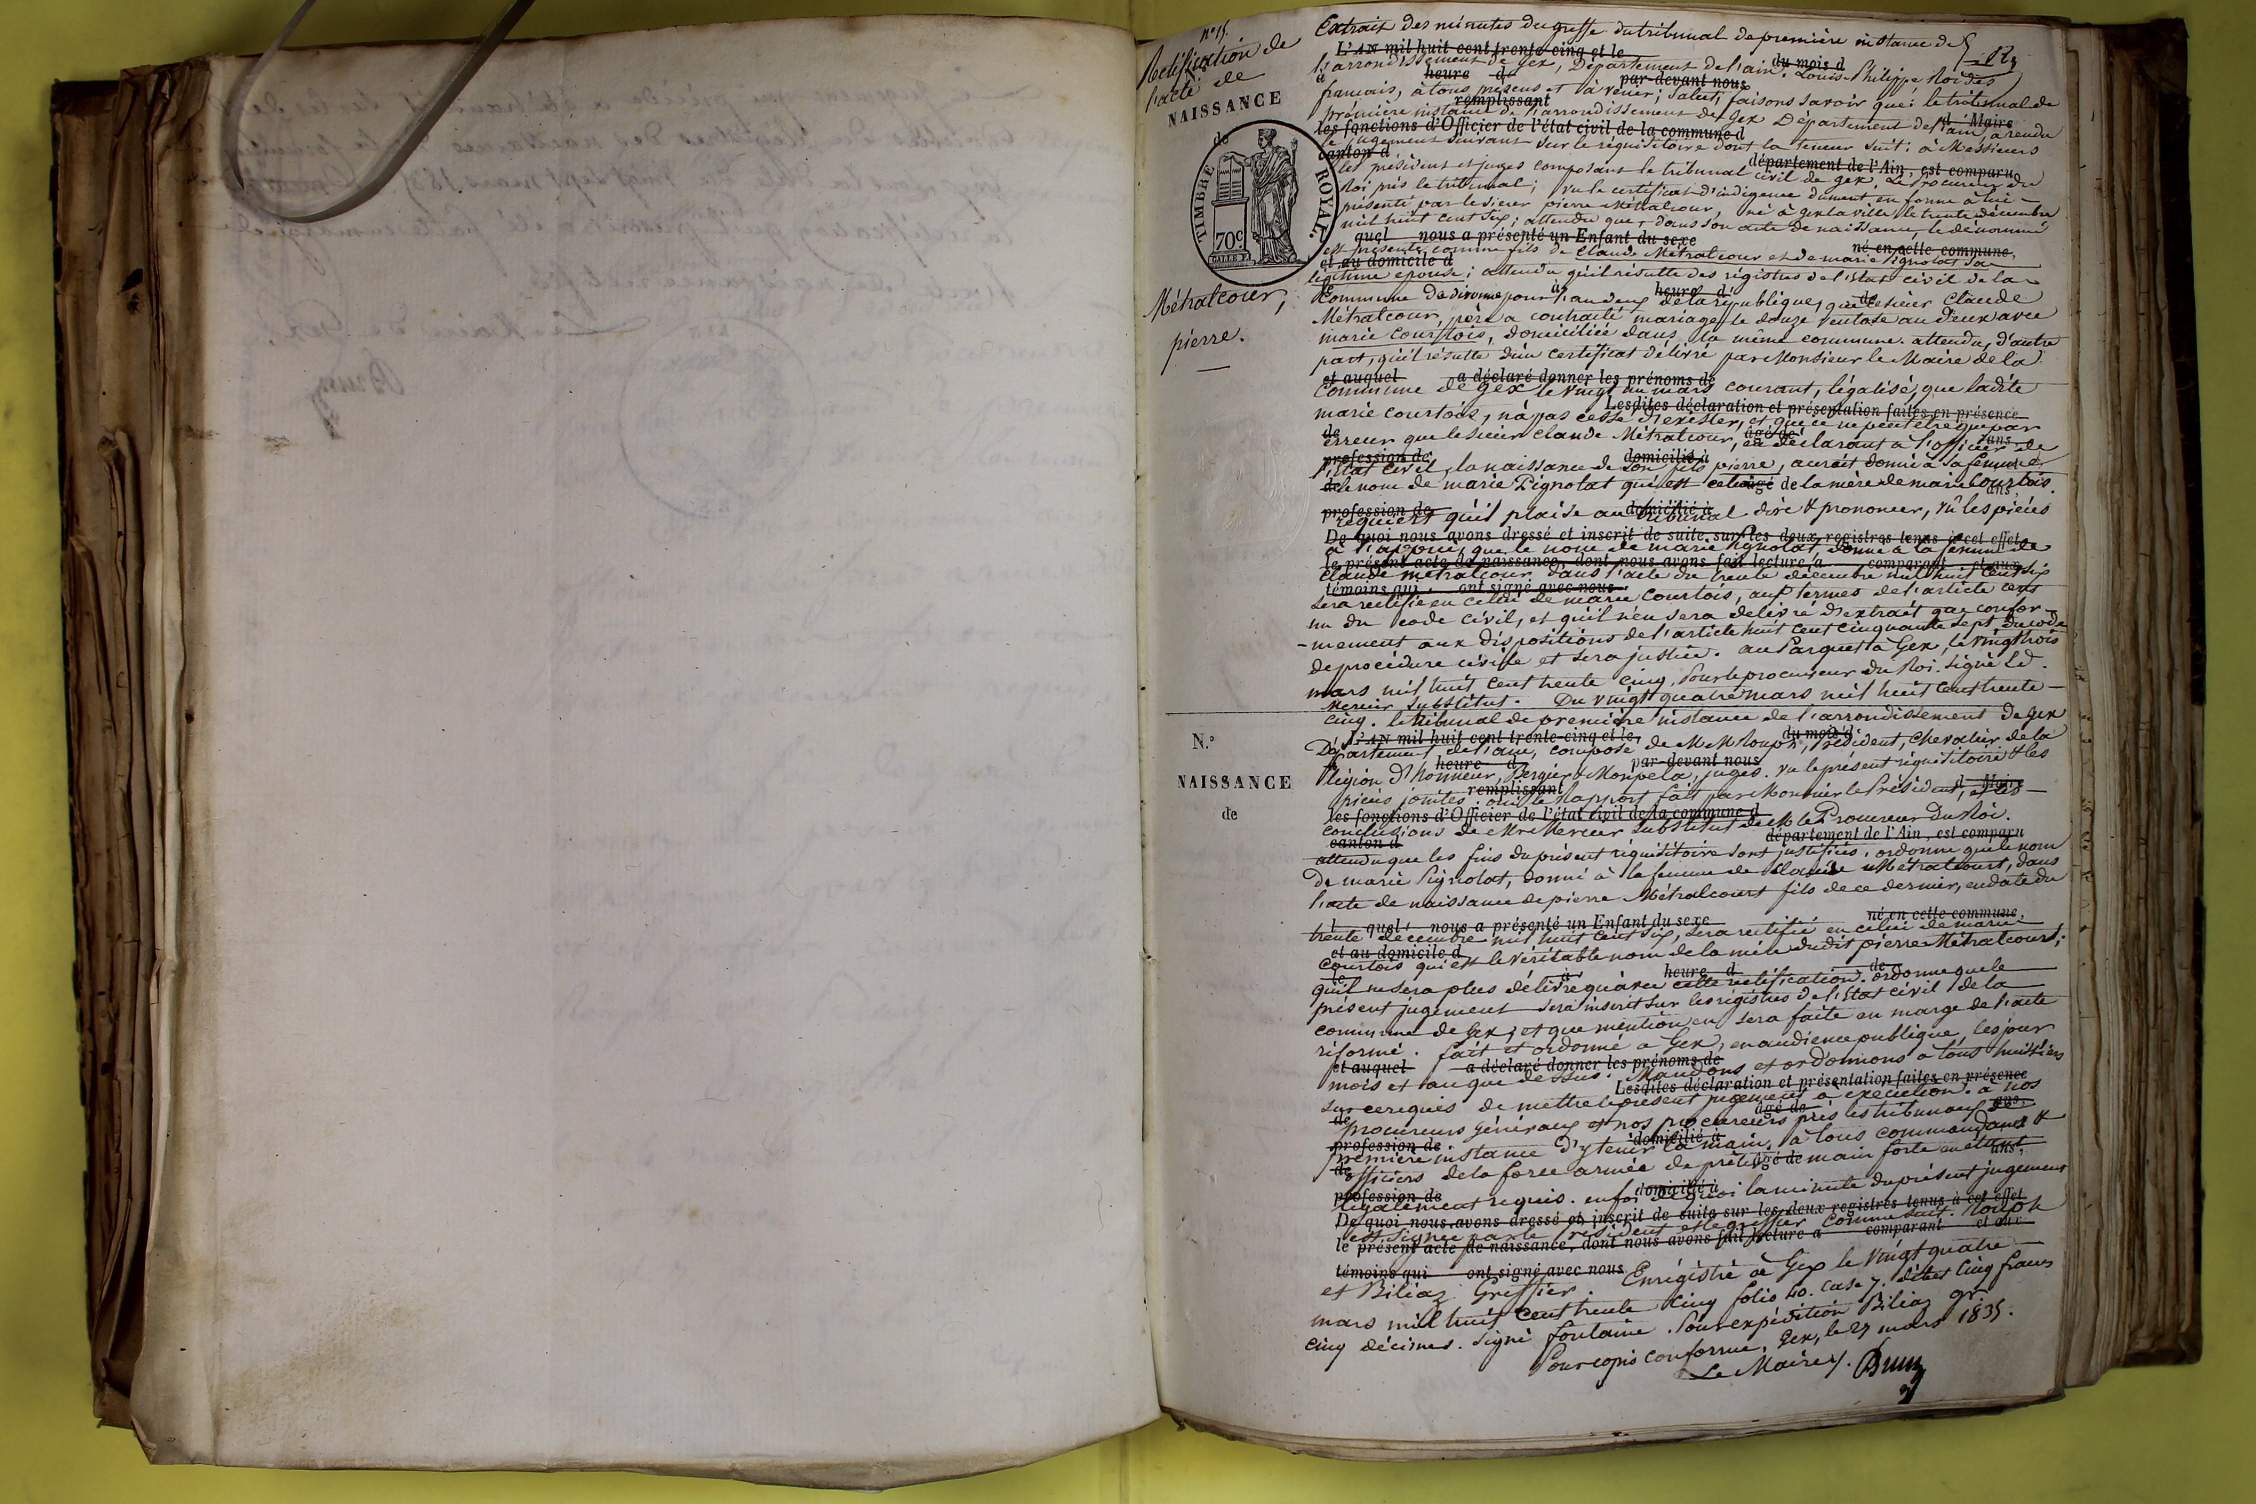 n° 15.
Rectification de
l'acte de
NAISSANCE
de
TIMBRE ROYAL.
70c.
Métralcour,
pierre.
Extrait des minutes du greffe du tribunal de première instance de
L'AN mil huit cent trente-cinq et le du mois d
l'arrondissement de Gex, Département de l'ain. Louis Philippe Roi des
à heure d par-devant nous
français, à tous présens et à venir; salut, faisons savoir que: le tribunal de
remplissant
première instance de l'arrondissement de Gex Département de l'ain, a rendu
d Maire
les fonctions d'Officier de l'état civil de la commune d
le jugement suivant sur le réquisitoire dont la teneur suit: à Messieurs
canton d département de l'Ain, est comparu
les président et juges composant le tribunal civil de gex. Le Procureur du
Roi près le tribunal; vu le certificat d'indigence dument en forme à lui
présenté par le sieur pierre Métralcour, né à gex la ville le trente décembre
mil huit cent six; attendu que dans son acte de naissance, le dénommé
quel nous a présenté un Enfant du sexe né en cette commune,
est présenté comme fils de Claude Métralcour et de marie Pignolat sa
et au domicile d
légitime épouse; attendu qu'il résulte des régistres de l'état civil de la
le à heure d de
Commune de divonne pour l'an deux de la république, que le sieur Claude
Métralcour, père a contracté mariage le douze ventose an deux avec
marie Courtois, domiciliée dans la même commune. attendu, d'autre
part, qu'il résulte d'un certificat délivré par Monsieur le Maire de la
et auquel a déclaré donner les prénoms de
Commune de Gex le vingt un mars courant, légalisé, que ladite
Lesdites déclaration et présentation faites en présence
marie courtois, n'a pas cessé d'exister, et que ce ne peut être que par
de âgé de ans,
erreur que le sieur claude Métralcour, en déclarant à l'officier de
profession de domicilié à
l'état civil, la naissance de son fils pierre, aurait donné à sa femme
de âgé de ans,
le nom de marie Pignolat qui est celui de la mère de marie Courtois.
profession de domicilié à
requiert qu'il plaise au tribunal dire & prononcer, vû les pièces
De quoi nous avons dressé et inscrit de suite sur les deux registres tenus à cet effet
à l'appui, que le nom de marie Pignolat, donné à la femme de
le présent acte de naissance, dont nous avons fait lecture a comparant et aux
claude métralcour dans l'acte du trente décembre mil huit cent six
témoins qui ont signé avec nous
sera rectifié en celui de marie Courtois, aux termes de l'article cent
un du code civil, et qu'il n'en sera délivré d'extrait que confor-
-mement aux dispositions de l'article huit cent cinquante sept du code
de procédure civile et sera justice. au Parquet à Gex, le vingt trois
mars mil huit cent trente cinq. Pour le procureur du Roi. signé Ld.
Mercier Substitut. Du vingt quatre mars mil huit cent trente
N.°
NAISSANCE
de
cinq. le tribunal de première instance de l'arrondissement de Gex
L'AN mil huit cent trente-cinq et le du mois d
Département de l'ain, composé de MM. Rouph, Président, Chevalier de la
à heure d par-devant nous
légion d'honneur, Bergier & Monpela, juges. vu le présent réquisitoire & les
remplissant d Maire
pièces jointes oui le Rapport fait par Monsieur le Président, et les
les fonctions d'Officier de l'état civil de la commune d
conclusions de Mr Mercier Substitut de M. le Procureur Du Roi.
canton d département de l'Ain, est comparu
attendu que les fins du présent réquisitoire sont justifiées, ordonne que le nom
De marie Pignolat, donné à la femme de Claude Métralcourt, dans
l'acte de naissance de pierre Métralcourt fils de ce dernier, en date du
l quel nous a présenté un Enfant du sexe né en cette commune,
trente décembre mil huit cent six, sera rectifié en celui de marie
et au domicile d
courtois qui est le véritable nom de la mère dudit pierre Métralcourt;
le à heure d de
qu'il ne sera plus délivré qu'avec cette rectification. ordonne que le
présent jugement sera inscrit sur les régistres de l'Etat civil de la
commune de Gex, et que mention en sera faite en marge de l'acte
réformé. fait et ordonné à Gex, en audience publique, les jour
et auquel a déclaré donner les prénoms de
mois et an que dessus. Mandons et ordonnons à tous huissiers
Lesdites déclaration et présentation faites en présence
sur ce requis de mettre le présent jugement à exécution. à nos
de âgé de ans,
procureurs généraux et nos procureurs près les tribunaux de
profession de domicilié à
première instance d'y tenir la main, à tous commandants &
de âgé de ans,
officiers de la force armée de prêter main forte en étant
profession de domicilié à
légalement requis. en foi de quoi la minute du présent jugement
De quoi nous avons dressé et inscrit de suite sur les deux registres tenus à cet effet
est signée par le président et le greffier comme suit. Rouph
le présent acte de naissance, dont nous avons fait lecture a comparant et aux
témoins qui ont signé avec nous
et Biliaz Greffier. Enrégistré à Gex le vingt quatre
mars mil huit cent trente cinq folio 40. case 7. débet cinq francs
cinq décimes. Signé fontaine. Pour expédition Biliaz gr.
Pour copie conforme, Gex, le 27 mars 1835.
Le Maire,